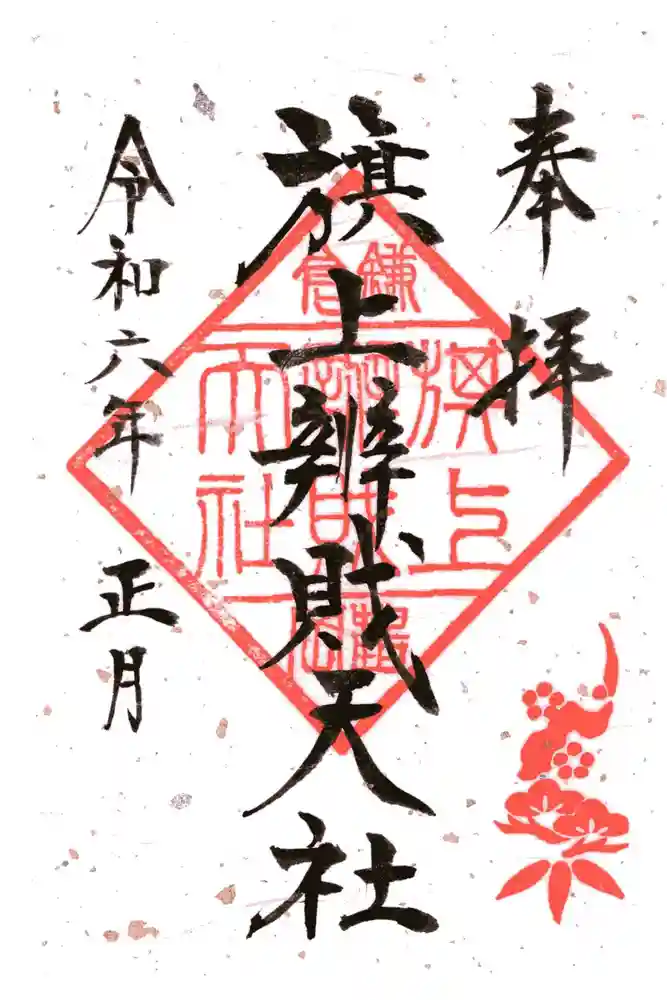 奉拝
旗上辨財天社
令和六年
正月
鎌倉
旗上
天社